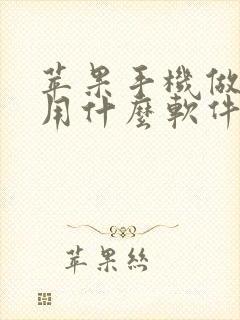 苹果手機做
用什麼軟件
苹果絲